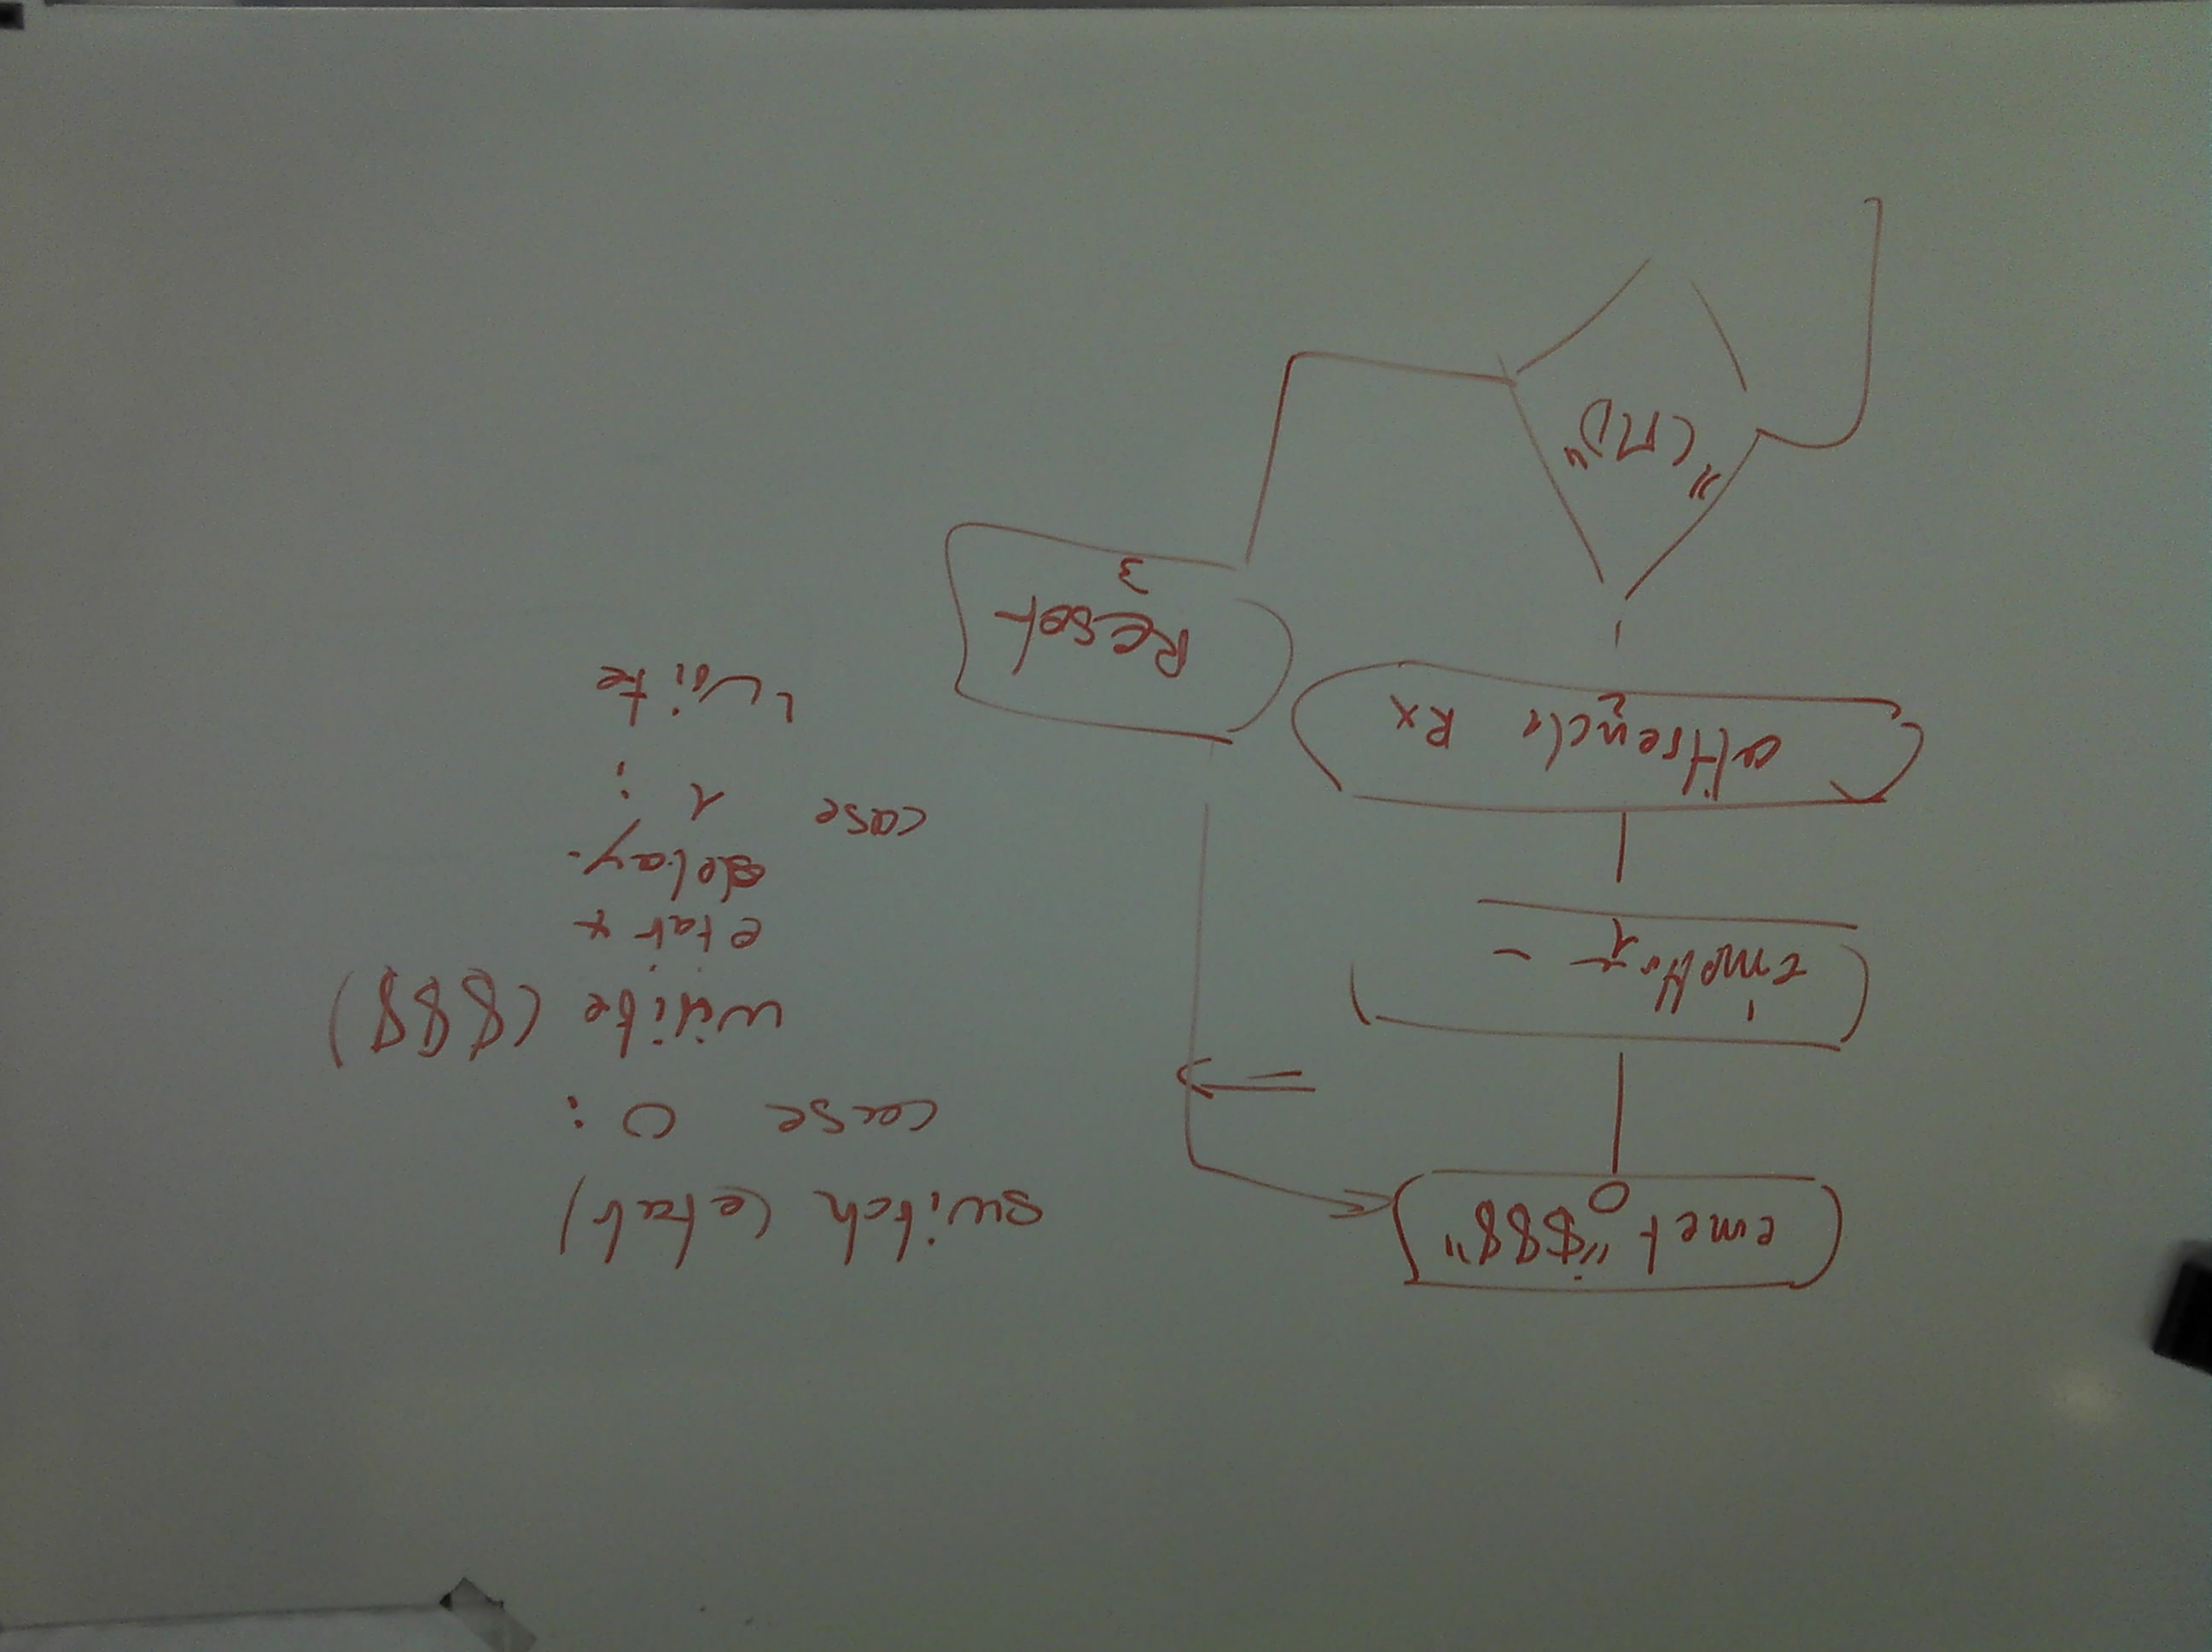 emet "$$$"
0
émettre -
1
attendre Rx
2
"CMD"
Reset
3
switch (etat)
case 0 :
write ($$$)
etat +
delay.
case 1 :
write